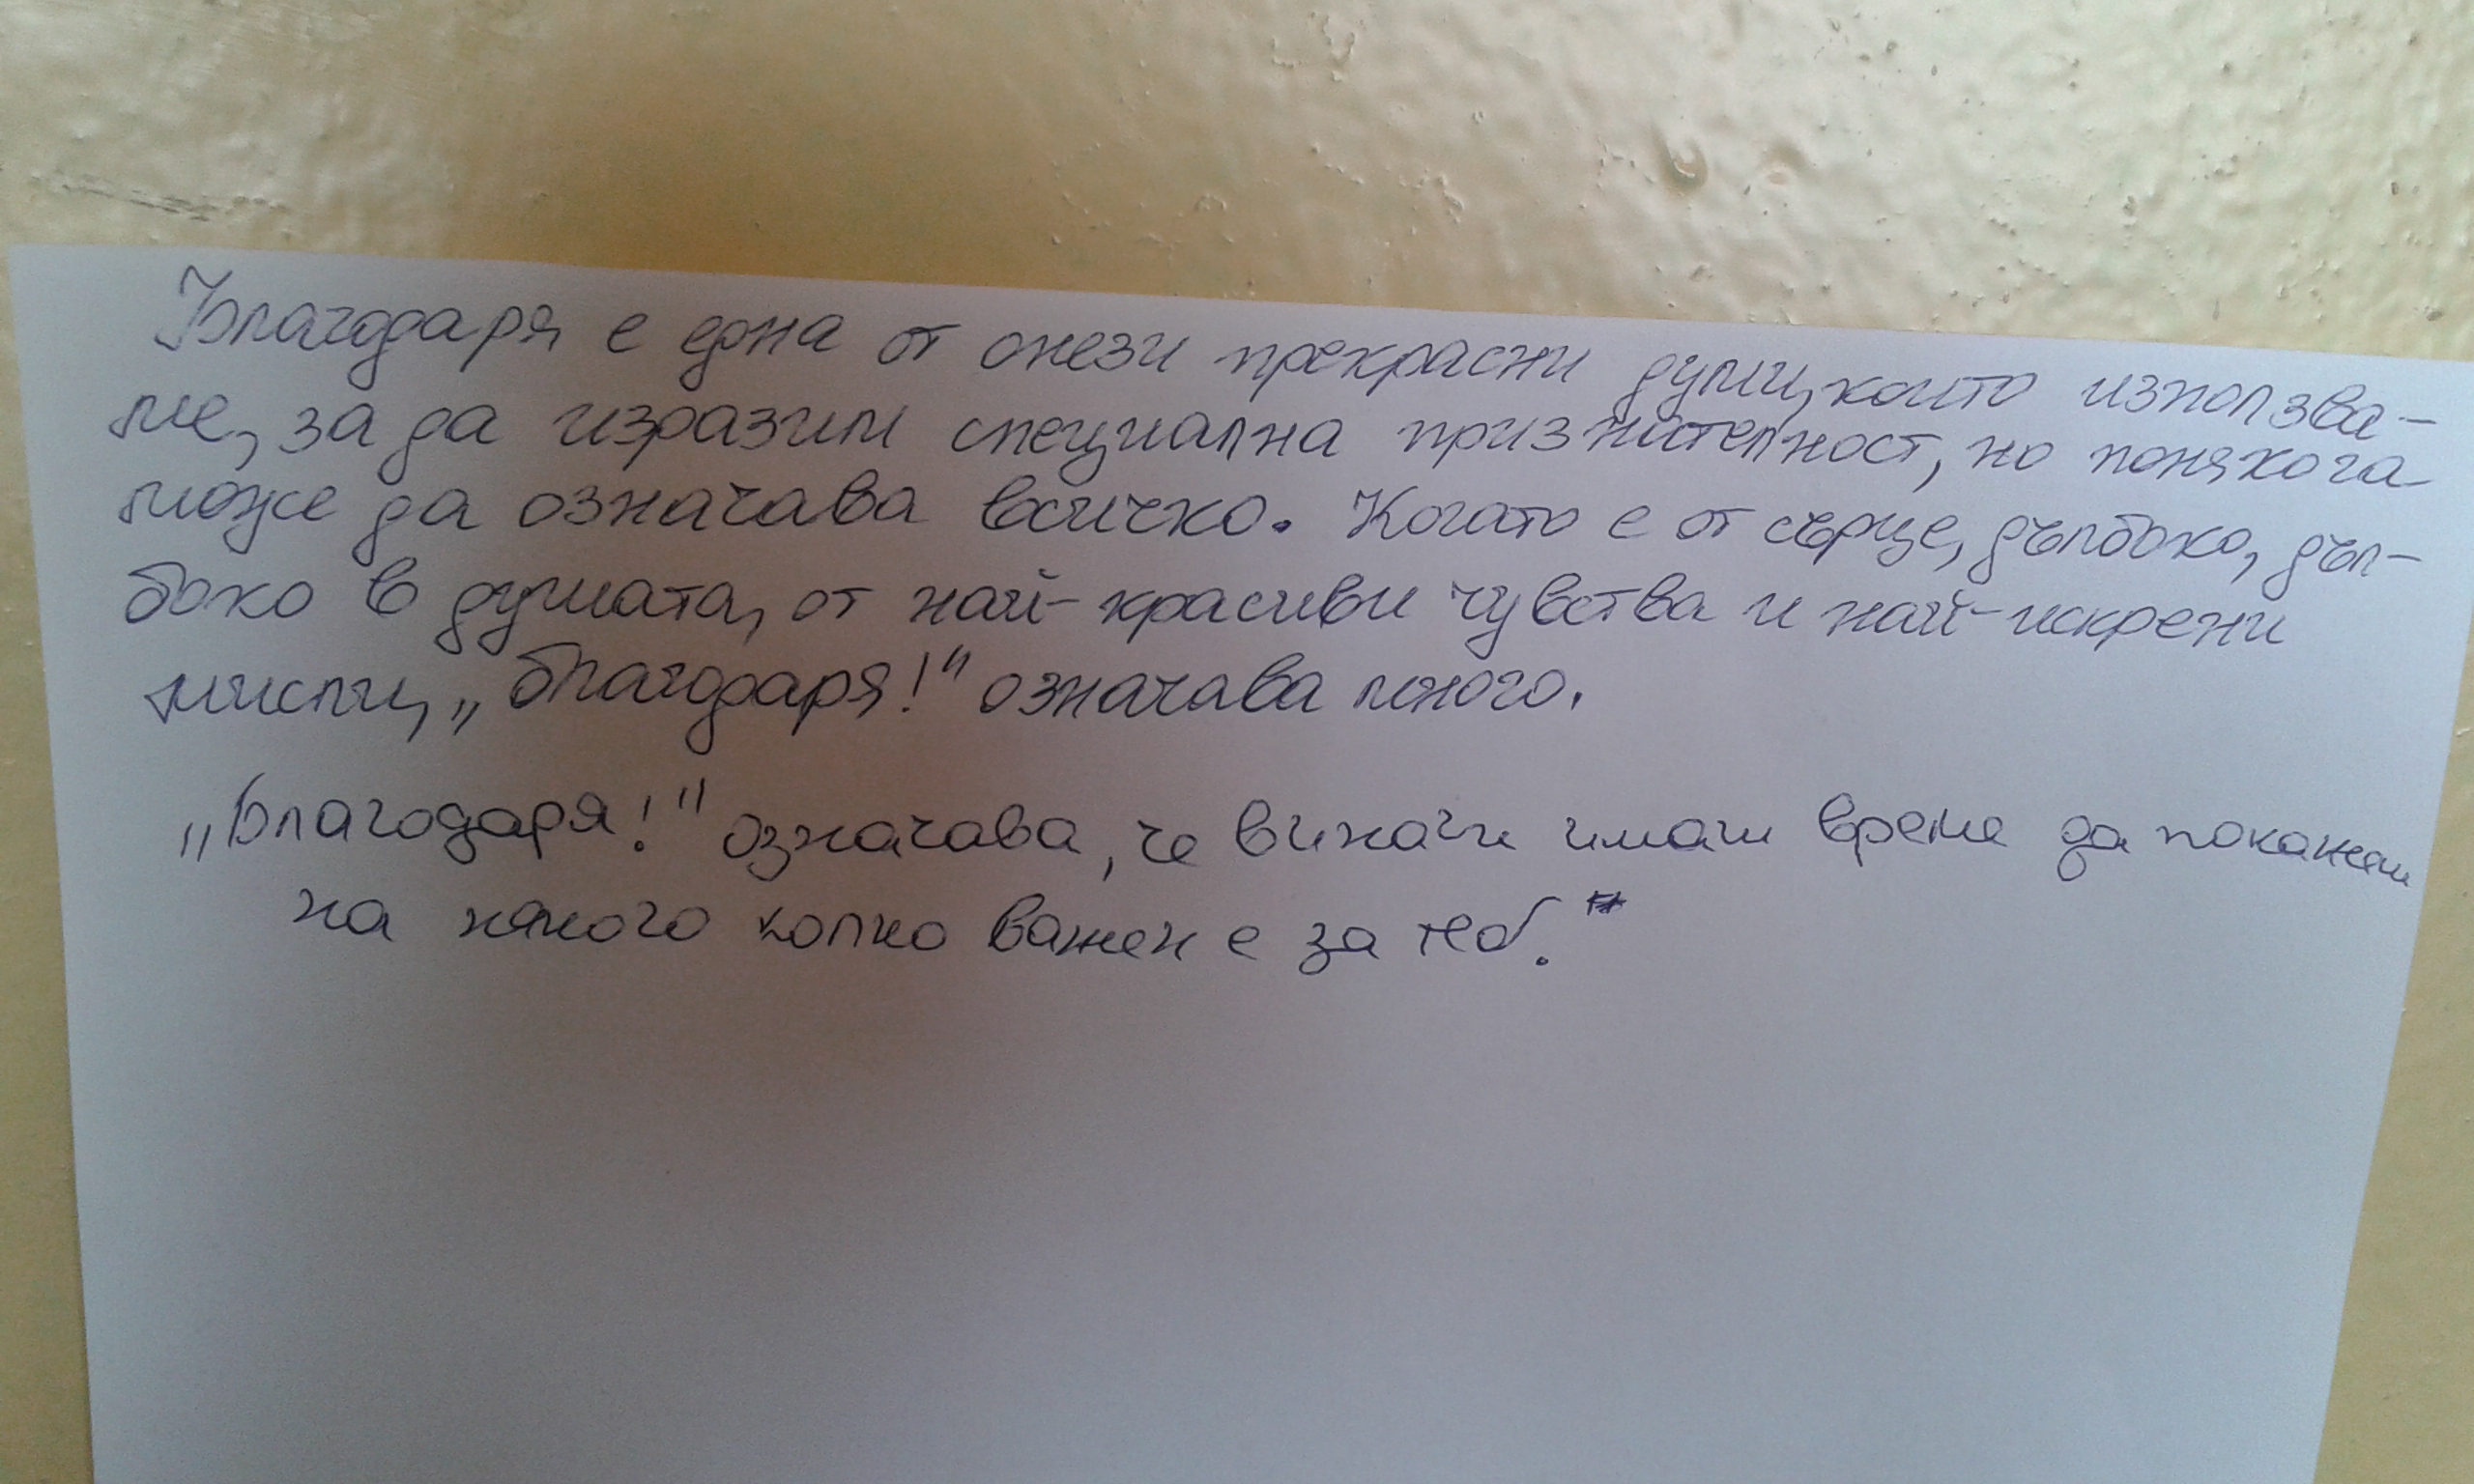 Благодаря е една от онези прекрасни думи, които използва-
ме, за да изразим специална признателност, но понякога
може да означава всичко. Когато е от сърце, дълбоко, дъл-
боко в душата, от най-красиви чувства и най-искрени
мисли, „благодаря!" означава много.
„Благодаря!" означава, че винаги имаш време да покажеш
на някого колко важен е за теб.